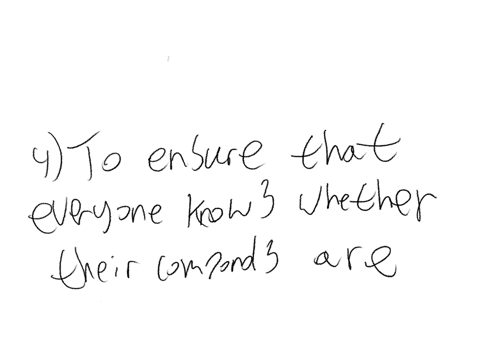 4) To ensure that
everyone knows whether
their componds are